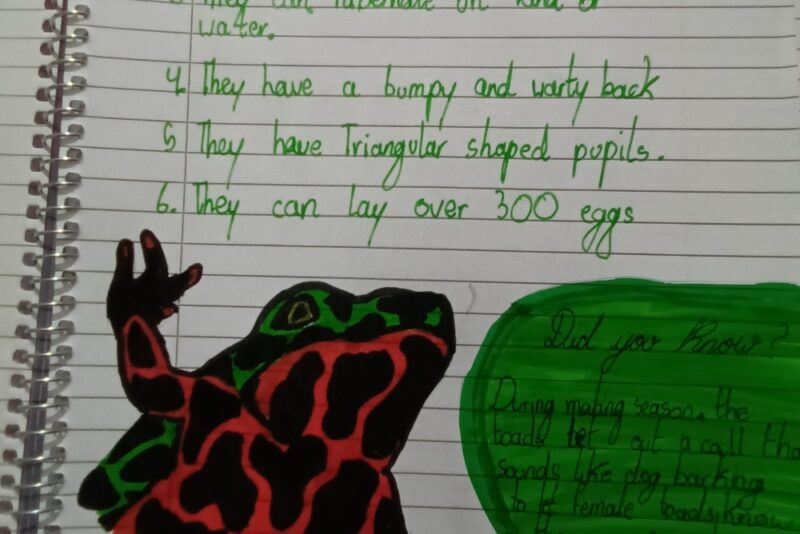 3 They can hibernate on land or
water.
4 They have a bumpy and warty back
5 They have Triangular shaped pupils.
6. They can lay over 300 eggs
Did you know?
During mating season, the
toads let out a call tha
sounds like dog barking
to female toads know